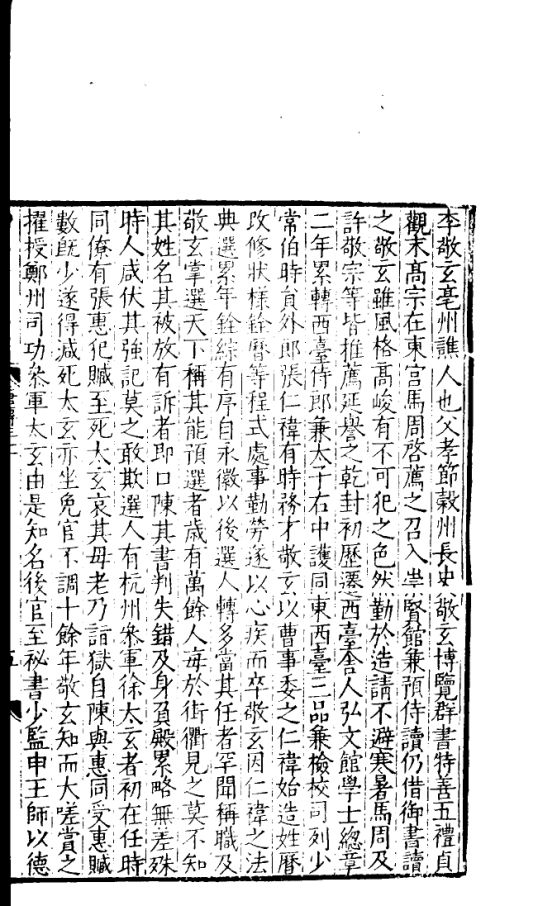 李敬玄亳州譙人也父孝節穀州長史敬玄博覽群書特善五禮貞
觀末髙宗在東宫馬周啓薦之召入崇賢館兼預侍讀仍借御書讀
之敬玄雖風格髙峻有不可犯之色然勤於造請不避寒暑馬周及
許敬宗等皆推薦延譽之乾封初歷遷西臺舍人弘文館學士緫章
二年累轉西臺侍郎兼太子右中護同東西臺三品兼檢校司列少
常伯時貟外郎張仁禕有時務才敬玄以曹事委之仁禕始造姓曆
改修狀樣銓曆等程式處事勤勞遂以心疾而卒敬玄因仁禕之法
典選累年銓綜有序自永徽以後選人轉多當其任者罕聞稱職及
敬玄掌選天下稱其能預選者歲有萬餘人毎於街衢見之莫不知
其姓名其被放有訴者即口陳其書判失錯及身負殿累略無差殊
時人咸伏其強記莫之敢欺選人有杭州參軍徐太玄者初在任時
同僚有張惠犯贓至死太玄哀其母老乃詣獄自陳與惠同受惠贓
數旣少遂得減死太玄亦坐免官不調十餘年敬玄知而大嗟賞之
擢授鄭州司功參軍太玄由是知名後官至祕書少監申王師以德